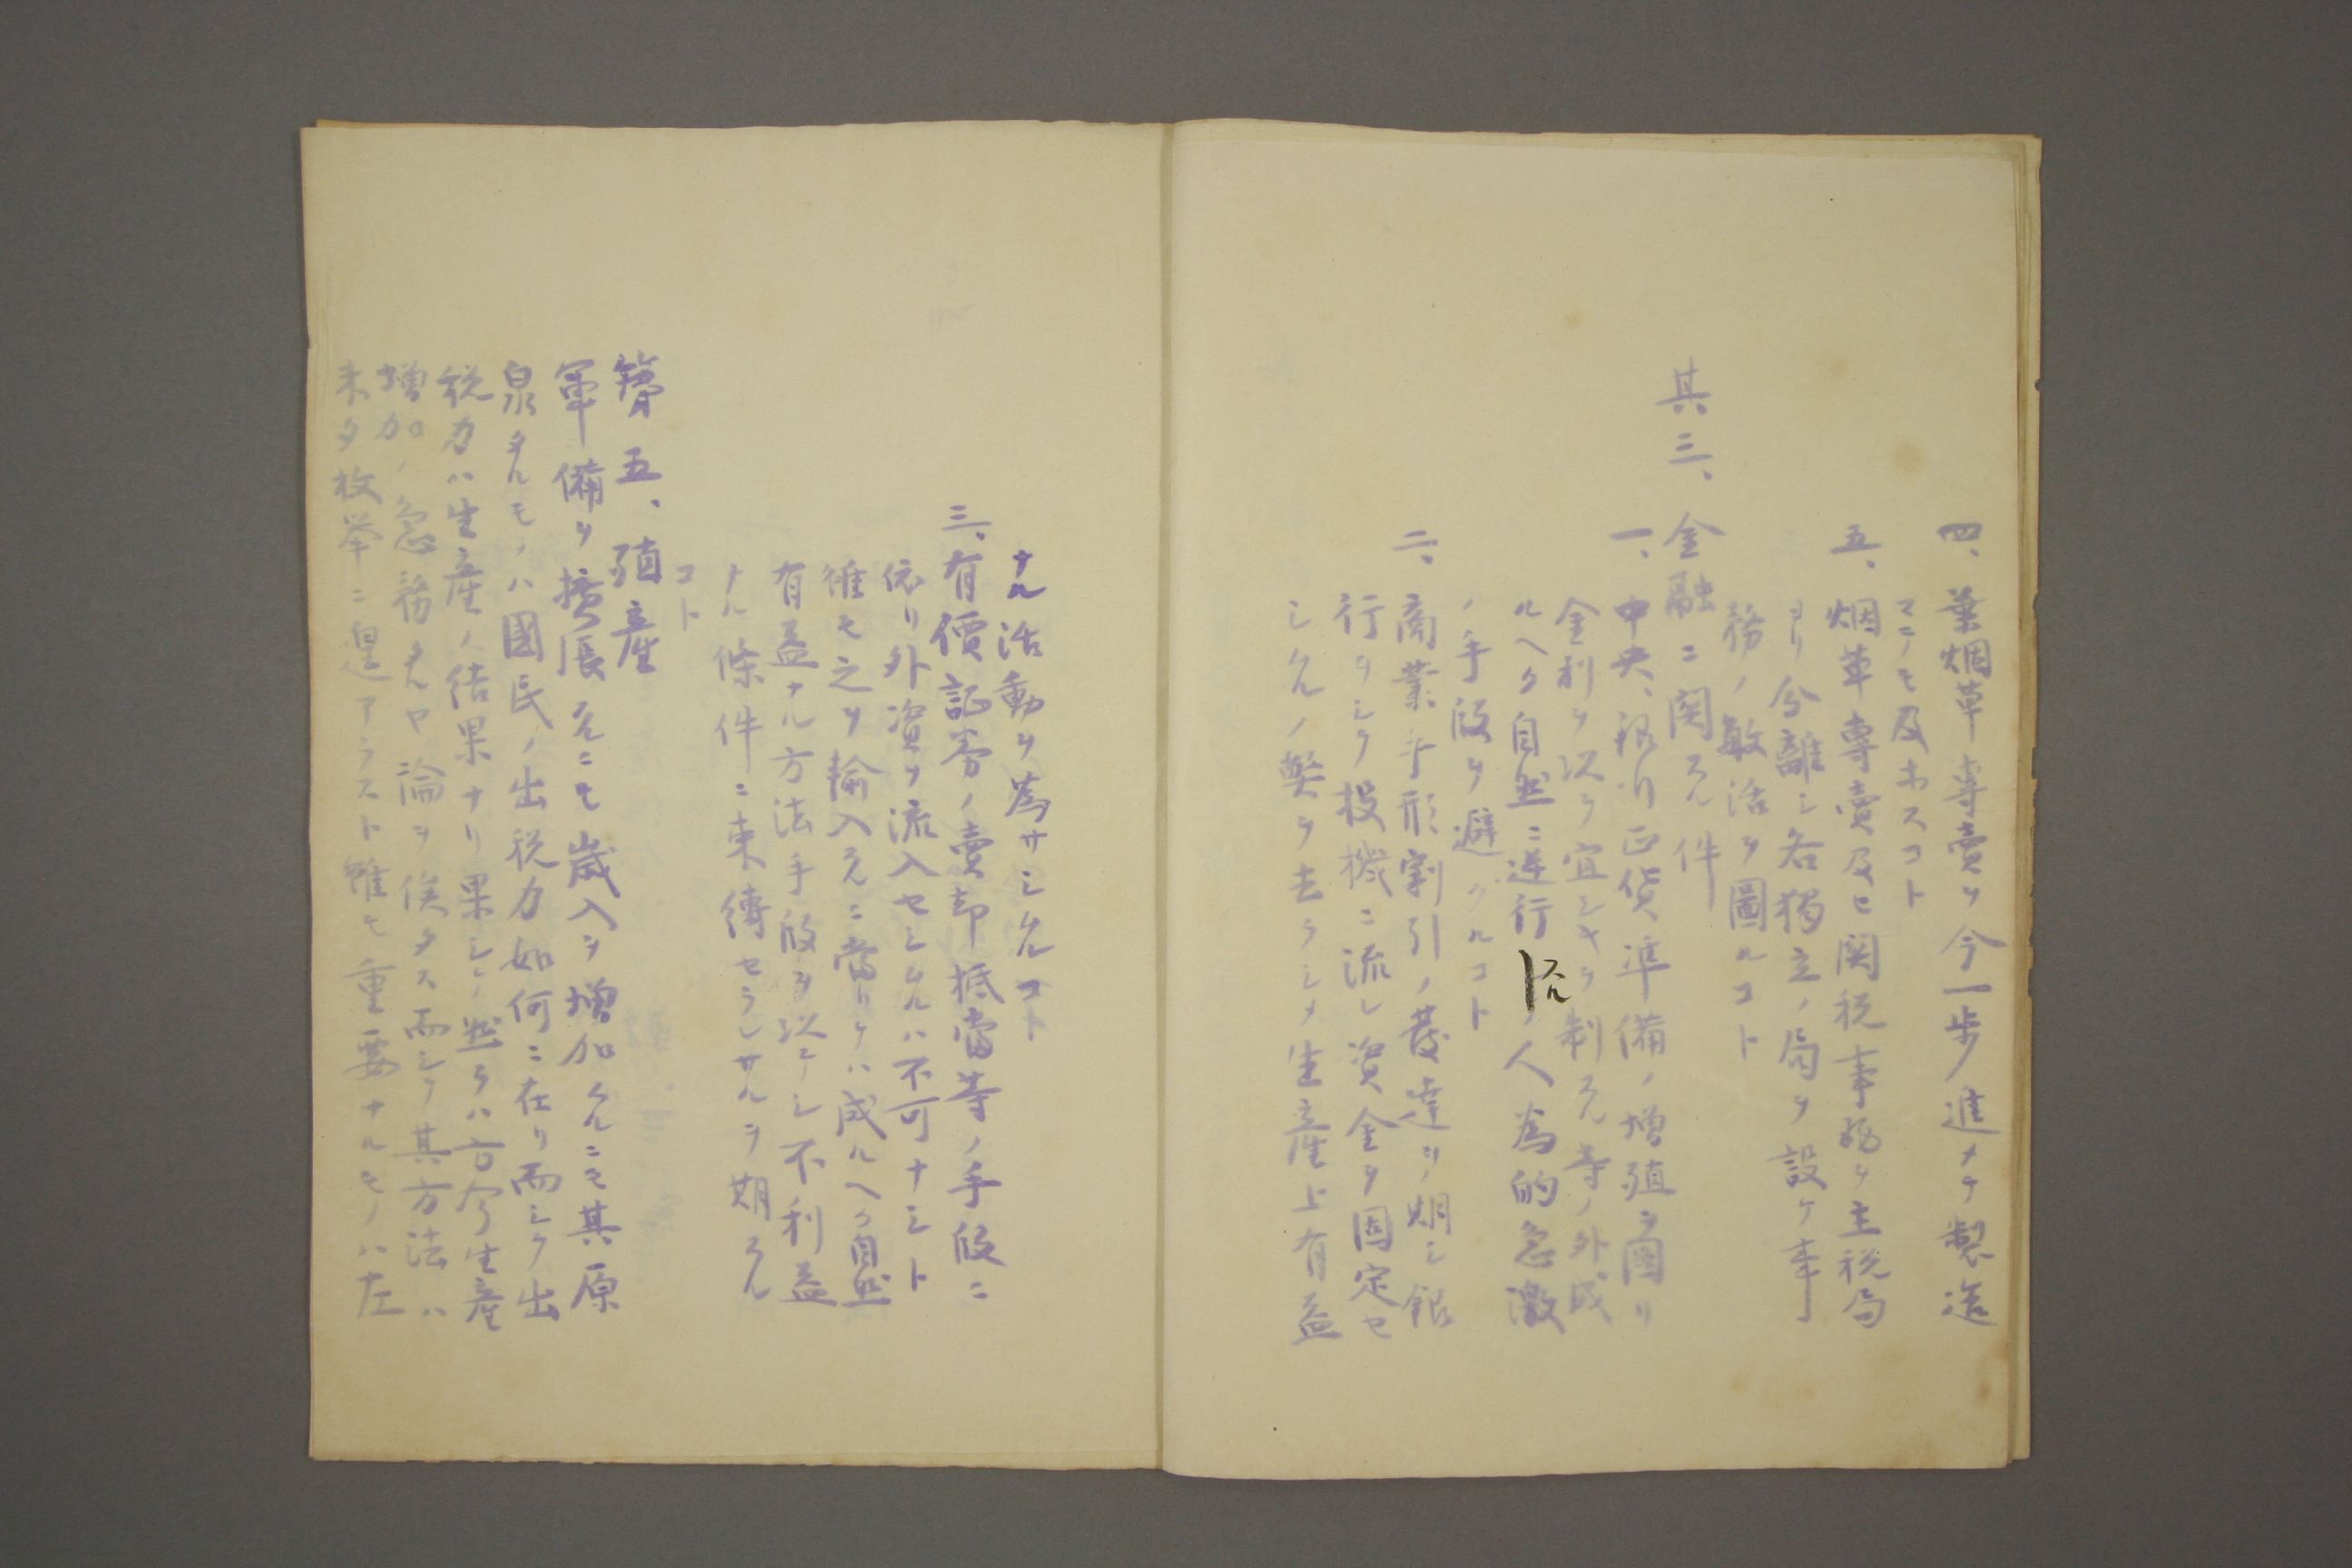 四、葉烟草専賣ヲ今一歩進メテ製造
マテモ及ホスコト
五、烟草専賣及ヒ関税事務ヲ主税局
ヨリ分離シ各獨立ノ局ヲ設ケ事
務ノ敏活ヲ圖ルコト
其三、金融ニ関スル件
一、中央銀行正貨準備ノ増殖ヲ圖リ
金利ヲ以テ宜シキヲ制スル等ノ外成
ルヘク自然ニ逆行スルノ人為的急激
ノ手段ヲ避クルコト
二、商業手形割引ノ發達ヲ期シ銀
行ヲシテ投機ニ流レ資金ヲ固定セ
シムルノ弊ヲ去ラシメ生産上有益
ナル活動ヲ為サシムルコト
三、有價証券ノ賣却抵當等ノ手段ニ
依リ外資ヲ流入セシムルハ不可ナシト
雖モ之ヲ輸入スルニ當リテハ成ルヘク自然
有益ナル方法手段ヲ以テシ不利益
ナル條件ニ束縛セラレサルヲ期スル
コト
第五、殖産
軍備ヲ擴張スルニモ歳入ヲ増加スルニモ其原
泉タルモノハ國民ノ出税力如何ニ在リ而シテ出
税力ハ生産ノ結果ナリ果シテ然ラハ方今生産
増加ノ急務タルヤ論ヲ俟タス而シテ其方法ハ
未タ枚挙ニ遑アラスト雖モ重要ナルモノハ左